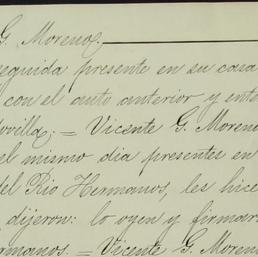 G. Moreno.
seguida presente en su casa
con el auto anterior y ente
ovilla. = Vicente G. Moreno
el mismo dia presentes en
del Rio Hermanos, les hice
dijeron: lo oyen y firmar
rmanos. = Vicente G. Moreno